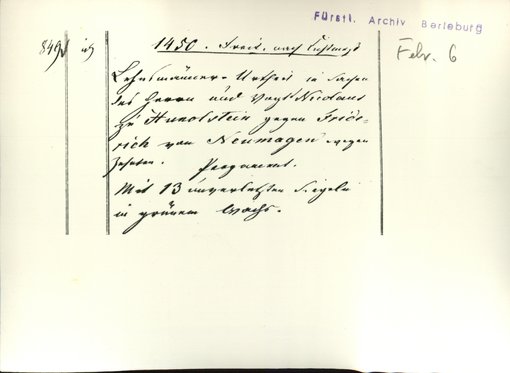 Fürstl. Archiv Berleburg
Febr. 6
1450. Freit. nach Lichtmeß
Lehnsmänner-Urtheil in Sachen
des Herrn und Vogt Nicolaus
zu Hunolstein gegen Fride-
rich von Neumagen wegen
Zehnten. Pergament.
Mit 13 unverletzten Siegeln
in grünem Wachs.